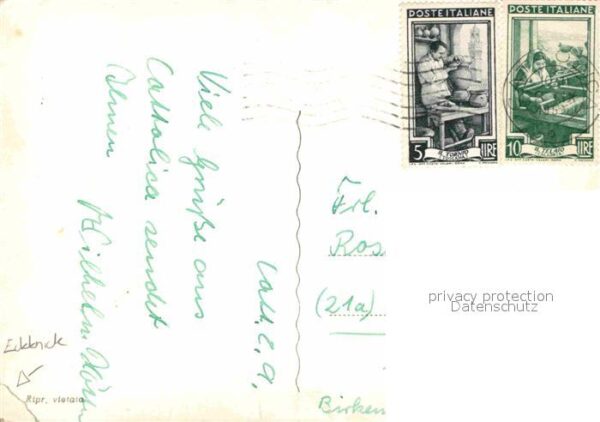 POSTE ITALIANE
5 IL TORNIO LIRE
POSTE ITALIANE
10 IL TELAIO LIRE
Viele Grüße aus
Cattolica sendet
Ihnen
Wilhelm
Catt. 2. 9.
Frl.
Ros
(21a)
Birken
privacy protection
Datenschutz
Eckknick
Ripr. vietata